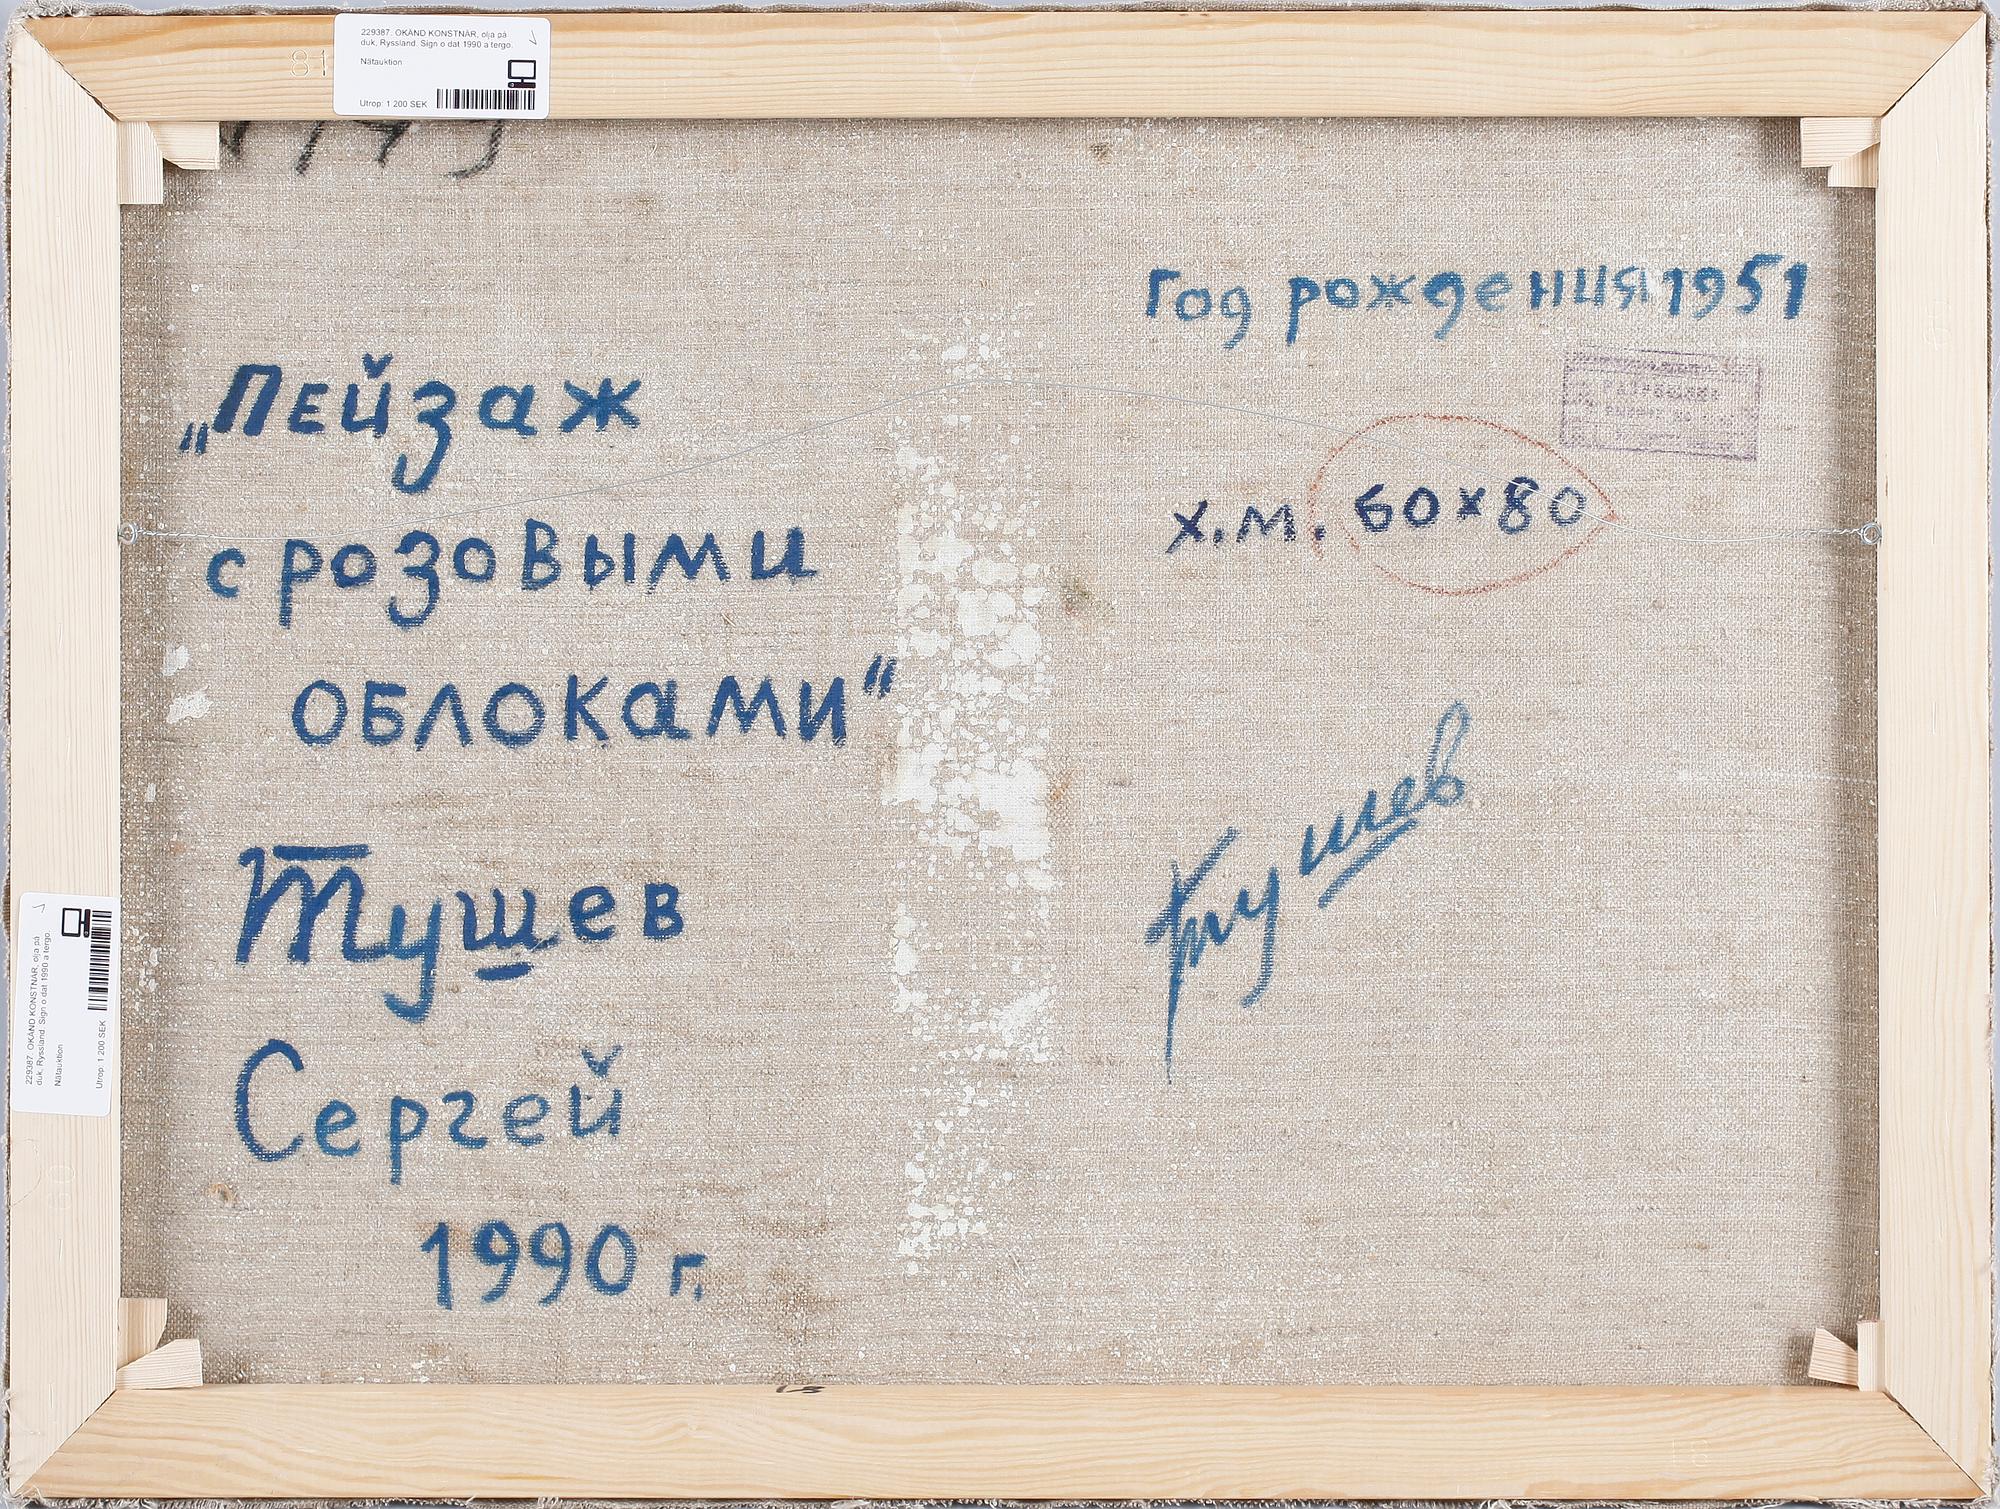 229387. OKÄND KONSTNÄR, olja på
duk, Ryssland. Sign o dat 1990 a tergo.
Nätauktion
Utrop: 1 200 SEK
81
Год рождения 1951
„Пейзаж
с розовыми
облоками“
х.м. 60х80
Тушев
Сергей
1990 г.
Тушев
229387. OKÄND KONSTNÄR, olja på
duk, Ryssland. Sign o dat 1990 a tergo.
Nätauktion
Utrop: 1 200 SEK
60